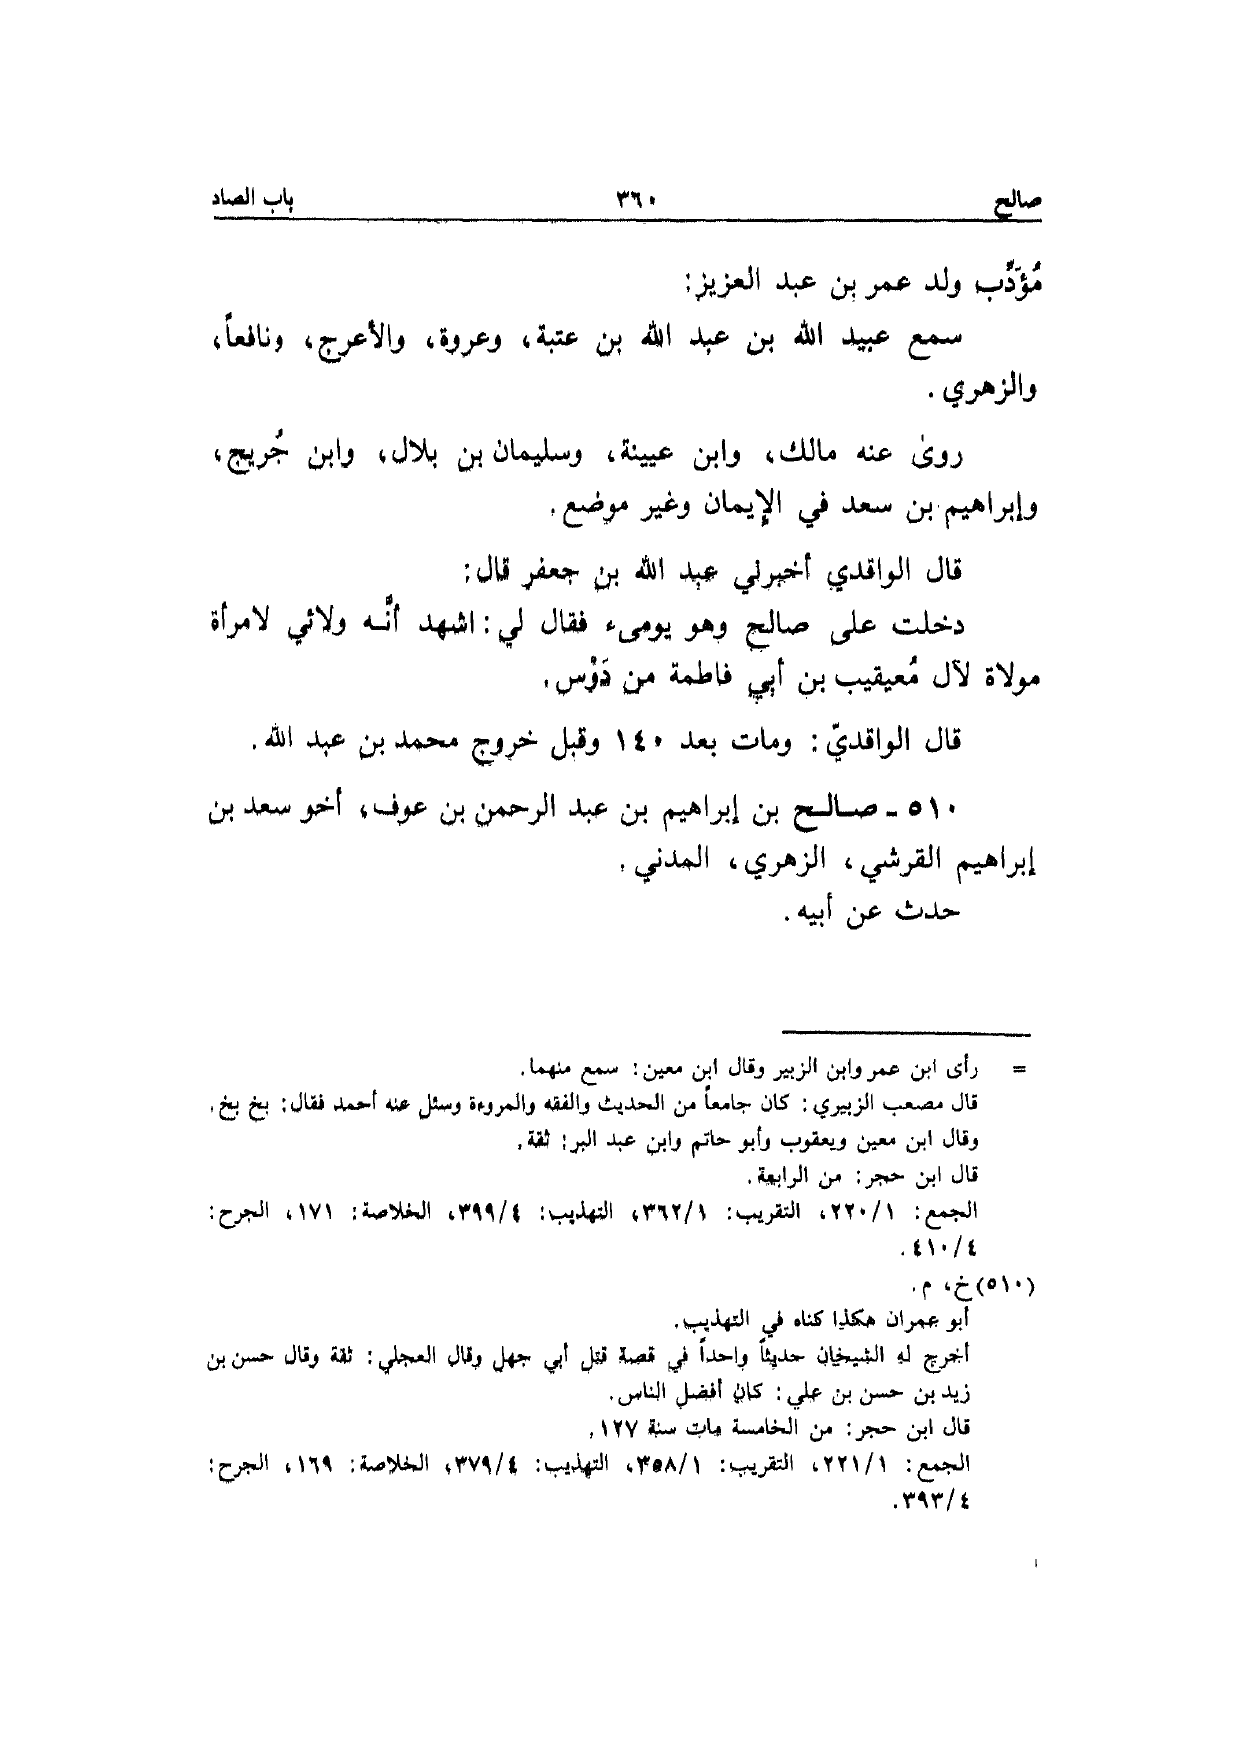 صالح ٣٦٠ باب الصاد
مُؤَدِّب ولد عمر بن عبد العزيز:
سمع عبيد الله بن عبد الله بن عتبة، وعروة، والأعرج، ونافعاً،
والزهري.
روىٰ عنه مالك، وابن عيينة، وسليمان بن بلال، وابن جُريج،
وإبراهيم بن سعد في الإيمان وغير موضع.
قال الواقدي أخبرني عبد الله بن جعفر قال:
دخلت على صالح وهو يومىء فقال لي: اشهد أنَّه ولائي لامرأة
مولاة لآل مُعيقيب بن أبي فاطمة من دَوْس.
قال الواقديّ: ومات بعد ١٤٠ وقبل خروج محمد بن عبد الله.
٥١٠ ـ صالح بن إبراهيم بن عبد الرحمن بن عوف، أخو سعد بن
إبراهيم القرشي، الزهري، المدني.
حدث عن أبيه.
= رأى ابن عمر وابن الزبير وقال ابن معين: سمع منهما.
قال مصعب الزبيري: كان جامعاً من الحديث والفقه والمروءة وسئل عنه أحمد فقال: بخ بخ.
وقال ابن معين ويعقوب وأبو حاتم وابن عبد البر: ثقة.
قال ابن حجر: من الرابعة.
الجمع: ٢٢٠/١، التقريب: ٣٦٢/١، التهذيب: ٣٩٩/٤، الخلاصة: ١٧١، الجرح:
٤١٠/٤.
(٥١٠) خ، م.
أبو عمران هكذا كناه في التهذيب.
أخرج له الشيخان حديثاً واحداً في قصة قتل أبي جهل وقال العجلي: ثقة وقال حسن بن
زيد بن حسن بن علي: كان أفضل الناس.
قال ابن حجر: من الخامسة مات سنة ١٢٧.
الجمع: ٢٢١/١، التقريب: ٣٥٨/١، التهذيب: ٣٧٩/٤، الخلاصة: ١٦٩، الجرح:
٣٩٣/٤.